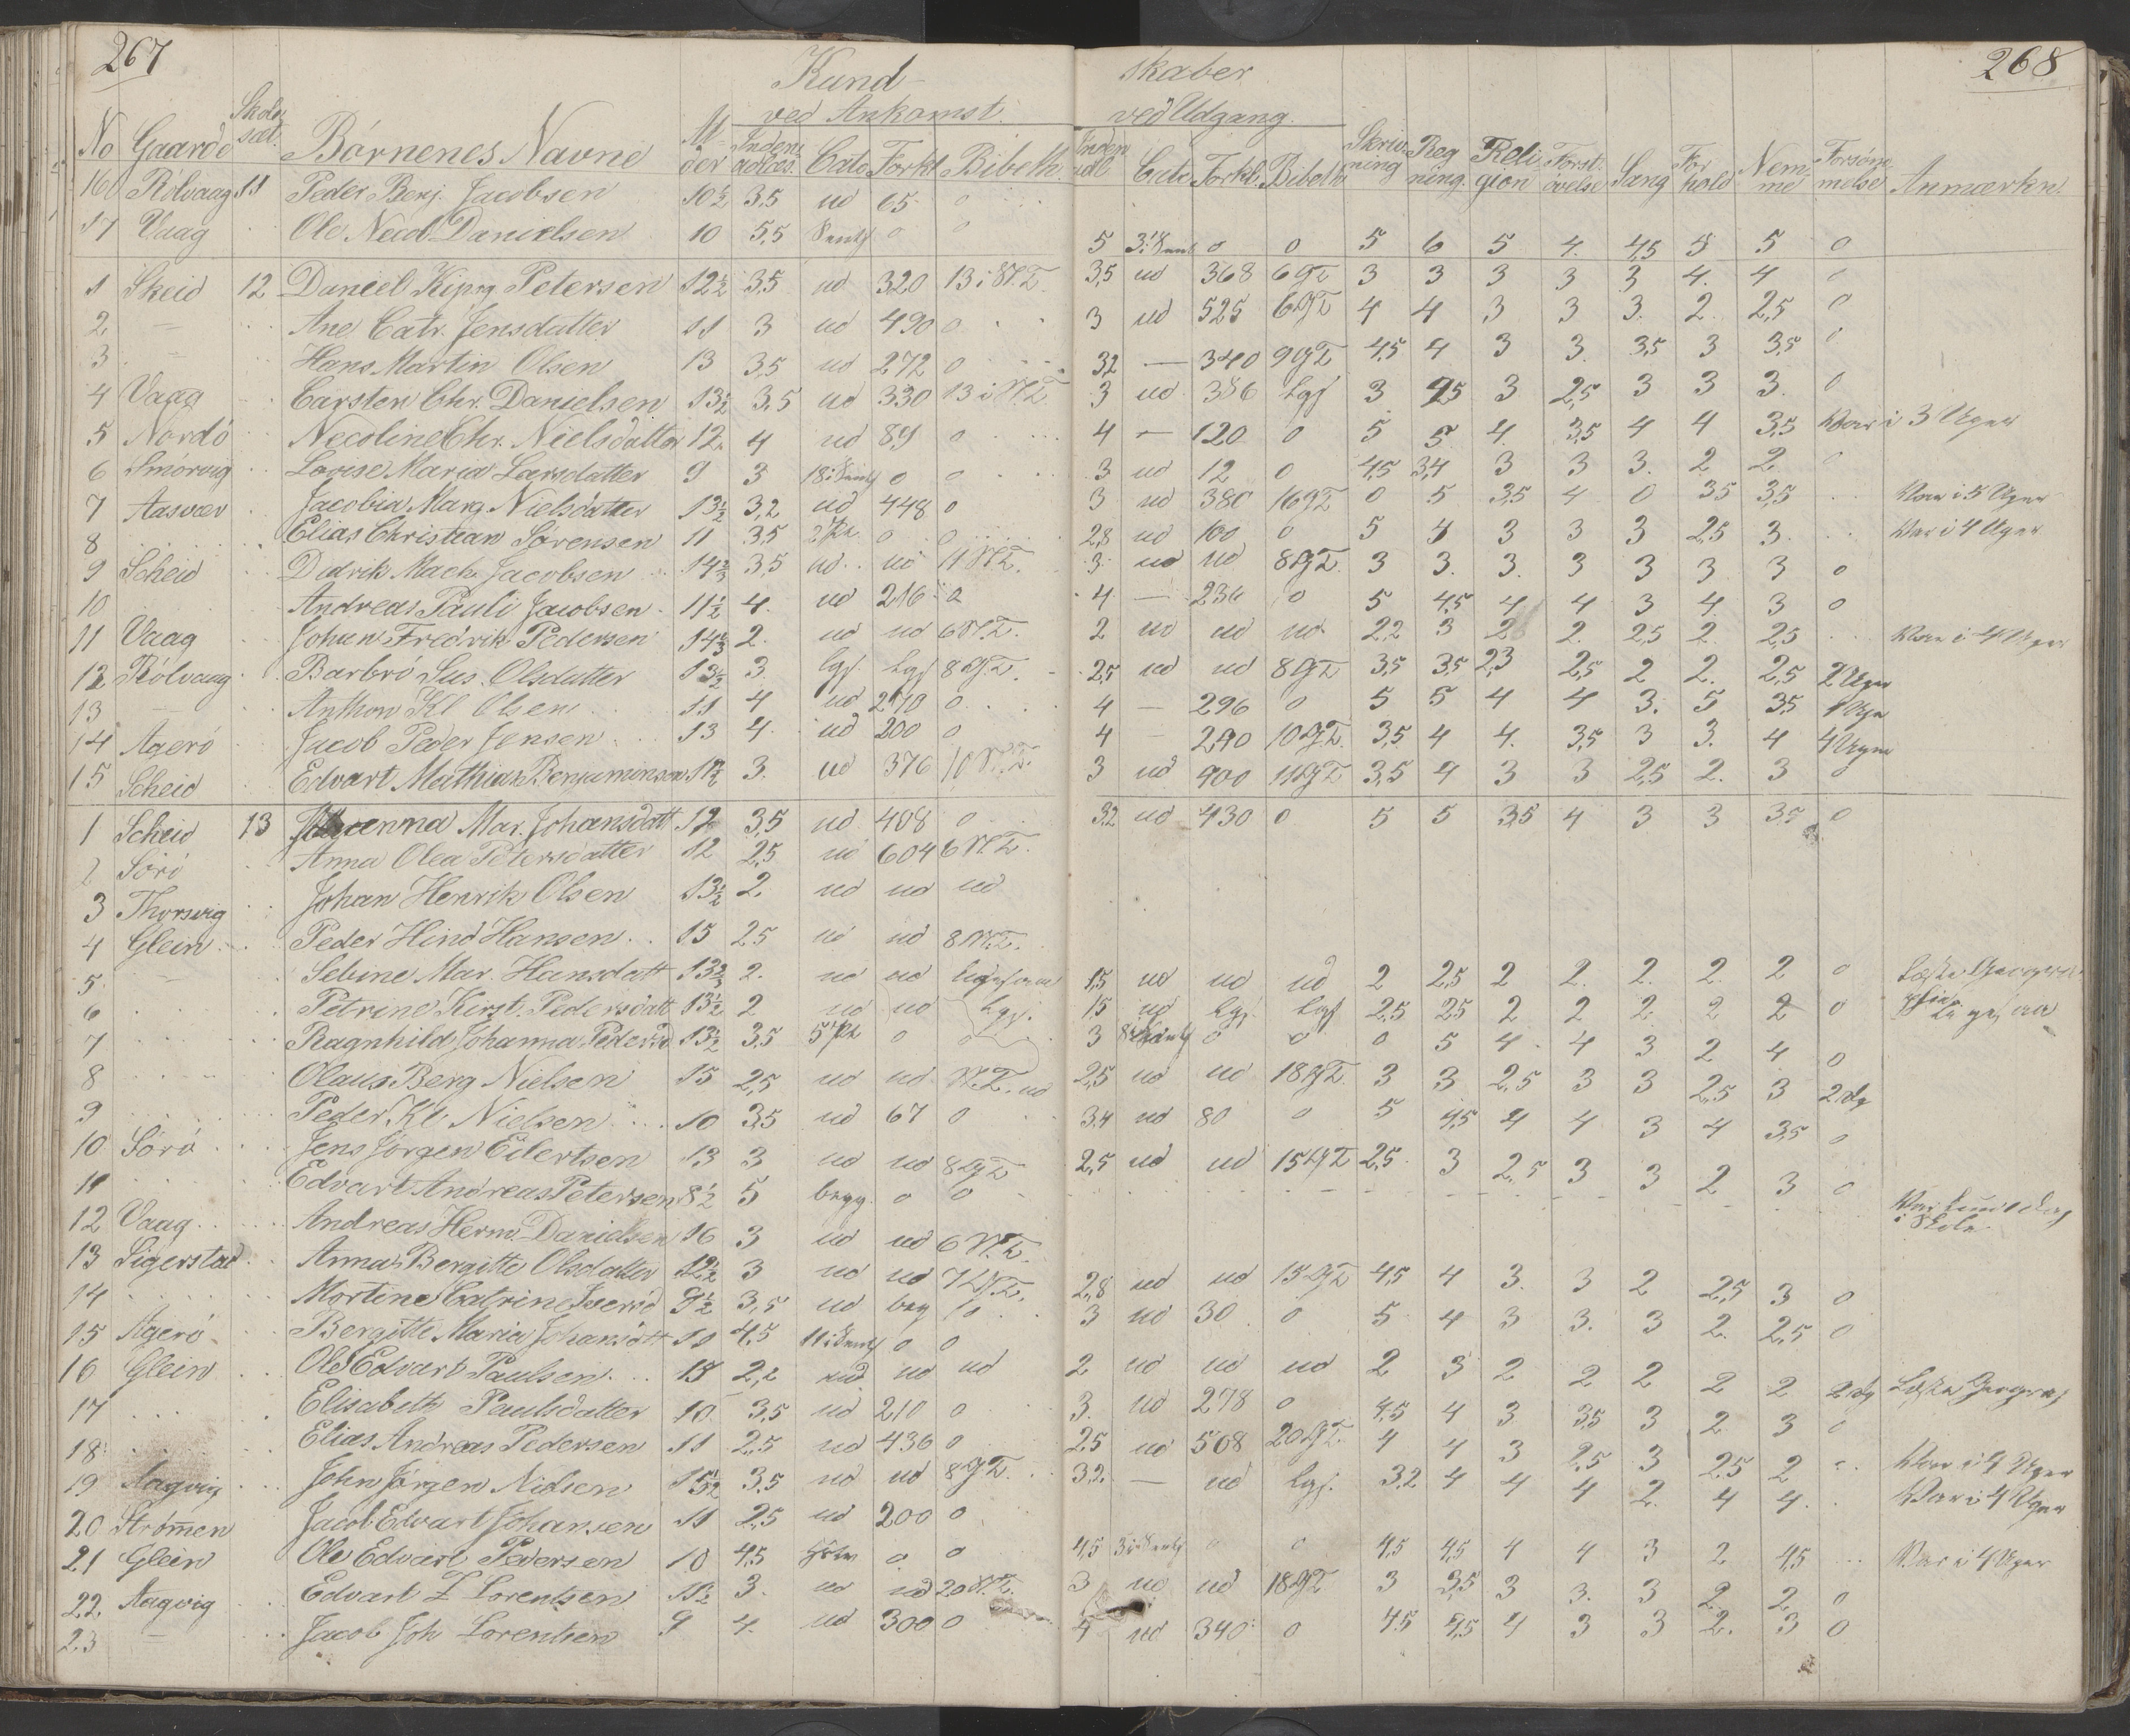 267
Kund-
skaber
268
ved Ankomst.
ved Udgang.
No Gaarde Skole sæt. Børnenes Navne Al der Indenadlæs. Cate Forkl. Bibelh. Inden adl Cate Forkl. Bibelh. Skriv ning Reg ning. Reli gion Forst. øvelse Sang For hold Nem me Forsøm melse Anmærkn.
16 Rølvaag 11 Peder Benj. Jacobsen 10½ 3,5 ud 65 0
17 Vaag Ole Necol. Danielsen 10 5,5 0 0 5 0 0 5 6 5 4. 4,5 5 5 0
1 Skeid 12 Daniel Petersen 12½ 3,5 ud 320 13 i N.T. 3,5 ud 368 6 gT 3 3 3 3 3 4. 4 0
2 — Ane Catr. Jensdatter 11 3 ud 490 0 3 ud 525 6 gT 4 4 3 3 3. 2. 2,5 0
3 — Hans Martin Olsen 13 3,5 ud 272 0 3,2 — 340 9 gT 4,5 4 3 3. 3,5 3 3,5 0
4 Vaag Carsten Chr. Danielsen 13½ 3,5 ud 330 13 i N.T. 3 ud 386 3 3 2,5 3 3 3. 0
5 Nordö Necoline Chr. Nielsdatter 12. 4 ud 89 0 4 — 120 0 5 5 4. 3,5 4 4 3,5 Var i 3 Uger
6 Smörvig Lovise Maria Larsdatter 9 3 0 0 3 ud 12 0 4,5 3,4 3 3 3. 2 2 0
7 Aasvær Jacobia Marg. Nielsdatter 13½ 3,2 ud 448 0 3 ud 380 16 gT 0 5 3,5 4 0 3,5 3,5 Var i 5 Uger
8 Elias Christian Sørensen 11 3,5 0 0 2,8 ud 100 0 5 4 3 3 3 2,5 3. Var i 4 Uger
9 Scheid Didrik Mach. Jacobsen 3,5 ud ud 11 N.T. 3 ud ud 8 gT. 3 3. 3. 3 3 3 3 0
10 Andreas Pauli Jacobsen 11½ 4. ud 216 0 4 — 236 0 5 4,5 4 4 3 4 3 0
11 Vaag Johan Fredrik Pedersen 2. ud ud 6 N.T. 2 ud ud ud 2,2 3 2 2. 2,5 2. 2,5 Var i 4 Uger
12 Rølvaag Barbrö Sus. Olsdatter 13½ 3. Lgf. Lgf 8 gT. 2,5 ud ud 8 gT 3,5 3,5 2,3 2,5 2 2. 2,5 2 Uger
13 — Anthon Kl. Olsen 11 4 ud 270 0 4 — 296 0 5 5 4 4 3. 5 3,5 1 Uge
14 Agerö Jacob Peder Jensen 13 4. ud 200 0 4 — 290 10 gT. 3,5 4 4. 3,5 3 3. 4 4 Uger
15 Scheid Edvart Mathias Benjaminsen 3. ud 376 10 N.T. 3 ud 400 11 gT 3,5 4 3 3 2,5 2. 3 0
1 Scheid 13 Mar. Johansdatt 12 3,5 ud 408 0 3,2 ud 430 0 5 5 3,5 4 3 3 3,5 0
2 Sörö Anna Olea Petersdatter 12 2,5 ud 604 6 N.T.
3 Thorsvig Johan Henrik Olsen 13½ 2. ud ud ud
4 Glein Peder Hind Hansen 15 2,5 ud ud 8 N.T.
5 — Sebine Mar. Hansdatt 2. ud ud 1,5 ud ud ud 2 2,5 2 2. 2. 2. 2 0 Læste Geogra-
6 Petrine Kirst. Pedersdatt 13½ 2 ud ud Lgf. 1,5 ud Lgf. Lgf 2,5 2,5 2 2 2. 2 2 0 phie
7 Ragnhild Johanna Pedersd 13½ 3,5 0 0 3 0 0 0 5 4 4 3 2 4 0
8 Olaus Berg Nielsen 15 2,5 ud ud N.T. ud 2,5 ud ud 18 gT. 3 3 2,5 3 3 2,5 3 2 dg
9 Peder Kl. Nielsen 10 3,5 ud 67 0 3,4 ud 80 0 5 4,5 4 4 3 4 3,5 0
10 Sörö Jens Jörgen Eilertsen 13 3 ud ud 8 gT 2,5 ud ud 15 gT 2,5 3 2,5 3 3 2 3 0
11 Edvart Andreas Petersen 8½ 5 begy. 0 0 Var kun 1 Dag i Skole.
12 Vaag Andreas Herm. Danielsen 16 3 ud ud 6 N.T.
13 Sigerstad Anna Bergitte Olsdatter 12½ 3 ud ud 7 N.T. 2,8 ud ud 15 gT 4,5 4 3. 3 2 2,5 3 0
14 Mortine Catrine 9½ 3,5 ud beg 0 3 ud 30 0 5 4 3 3. 3 2. 2,5 0
15 Agerö Bergitte Maria Johansdatt 11 4,5 0 0
16 Glein Ole Edvart Paulsen 15 2,2 ud ud ud 2 ud ud ud 2 3 2 2 2 2 2. 2 dg Læste Geograf
17 Elisabeth Paulsdatter 10 3,5 ud 210 0 3. ud 278 0 4,5 4 3 3,5 3 2. 3 0
18 Elias Andreas Pedersen 11 2,5 ud 436 0 2,5 ud 508 20 gT. 4 4 3 2,5 3 2,5 2 Var i 4 Uger
19 Aagvig John Jörgen Nielsen 15½ 3,5 ud ud 8 gT. 3,2 — ud Lgf. 3,2 4 4 4 2. 4 4. Var i 4 Uger
20 Strømen Jacob Edvart Johansen 11 2,5 ud 200 0
21 Glein Ole Edvart Pedersen 10 4,5 0 0 4,5 0 0 4,5 4,5 4 4 3 2 4,5 Var i 4 Uger
22 Aagvig Edvart Z Lorentsen 11½ 3. ud ud 20 N.T. 3 ud ud 18 gT 3 3,5 3 3. 3 2. 2. 0
23 — Jacob Joh Lorentsen 9 4. ud 300 0 4 ud 340 0 4,5 4,5 4 3 3 2. 3 0